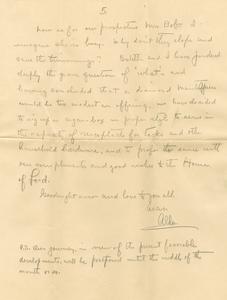 5
Now as for our prospective Mrs Bob - I
imagine she is busy. Why don't they elope and
save the trimmings? Edith and I have pondered
deeply the grave question of "what" - and
having concluded that a diamond
would be too modest an offering, we have decided
to rig up a cigar-box in proper style to serve in
the capacity of receptacle for tacks and other
household hardware, and to proffer the same with
our compliments and good wishes to the House
of Ford.
Goodnight now and love to you all
Aldo
P.S. Our journey, in view of the present favorable
developments, will be postponed until the middle of the
month or so.